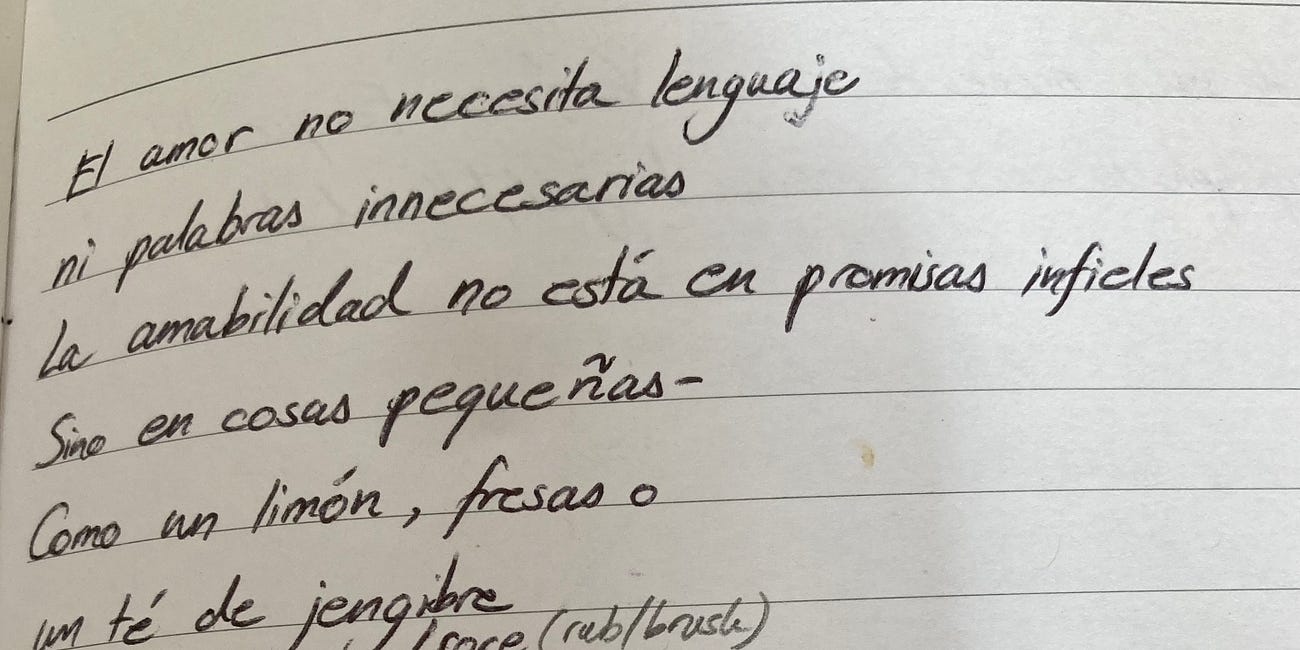 El amor no necesita lenguaje
ni palabras innecesarias
La amabilidad no está en promisas infieles
Sino en cosas pequeñas-
Como un limón, fresas o
un té de jengibre
roce (rub/brush)